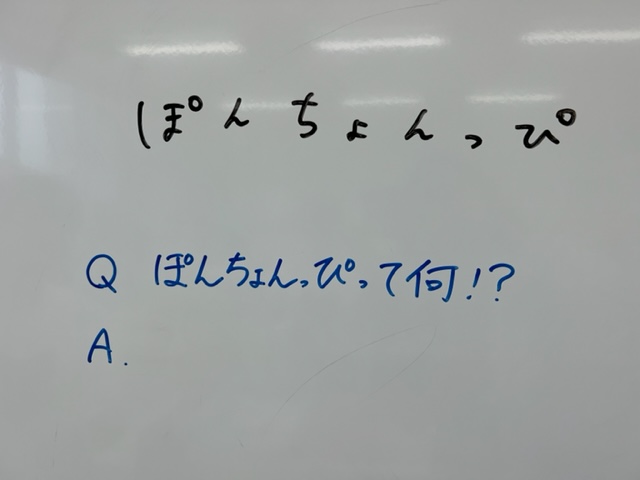 ぽんちょんっぴ
Q ぽんちょんっぴって何!?
A.